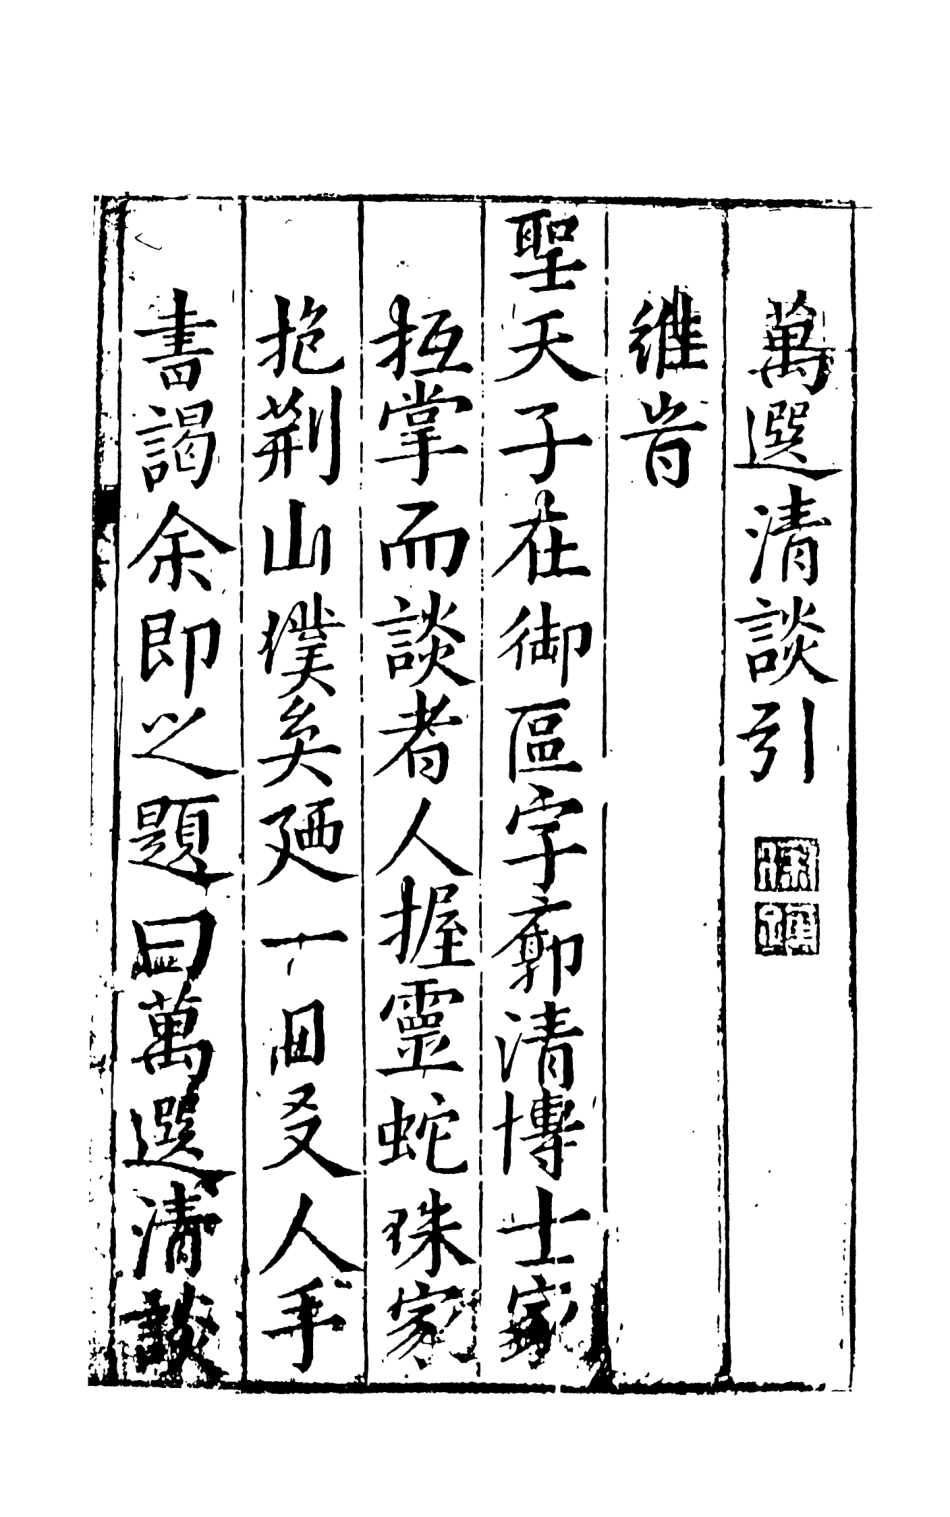 萬選清談引
維昔
聖天子在御區宇廓清博士家
抵掌而談者人握靈蛇珠家
抱荆山璞矣廼一目叐人手
書謁余即之題曰萬選清談